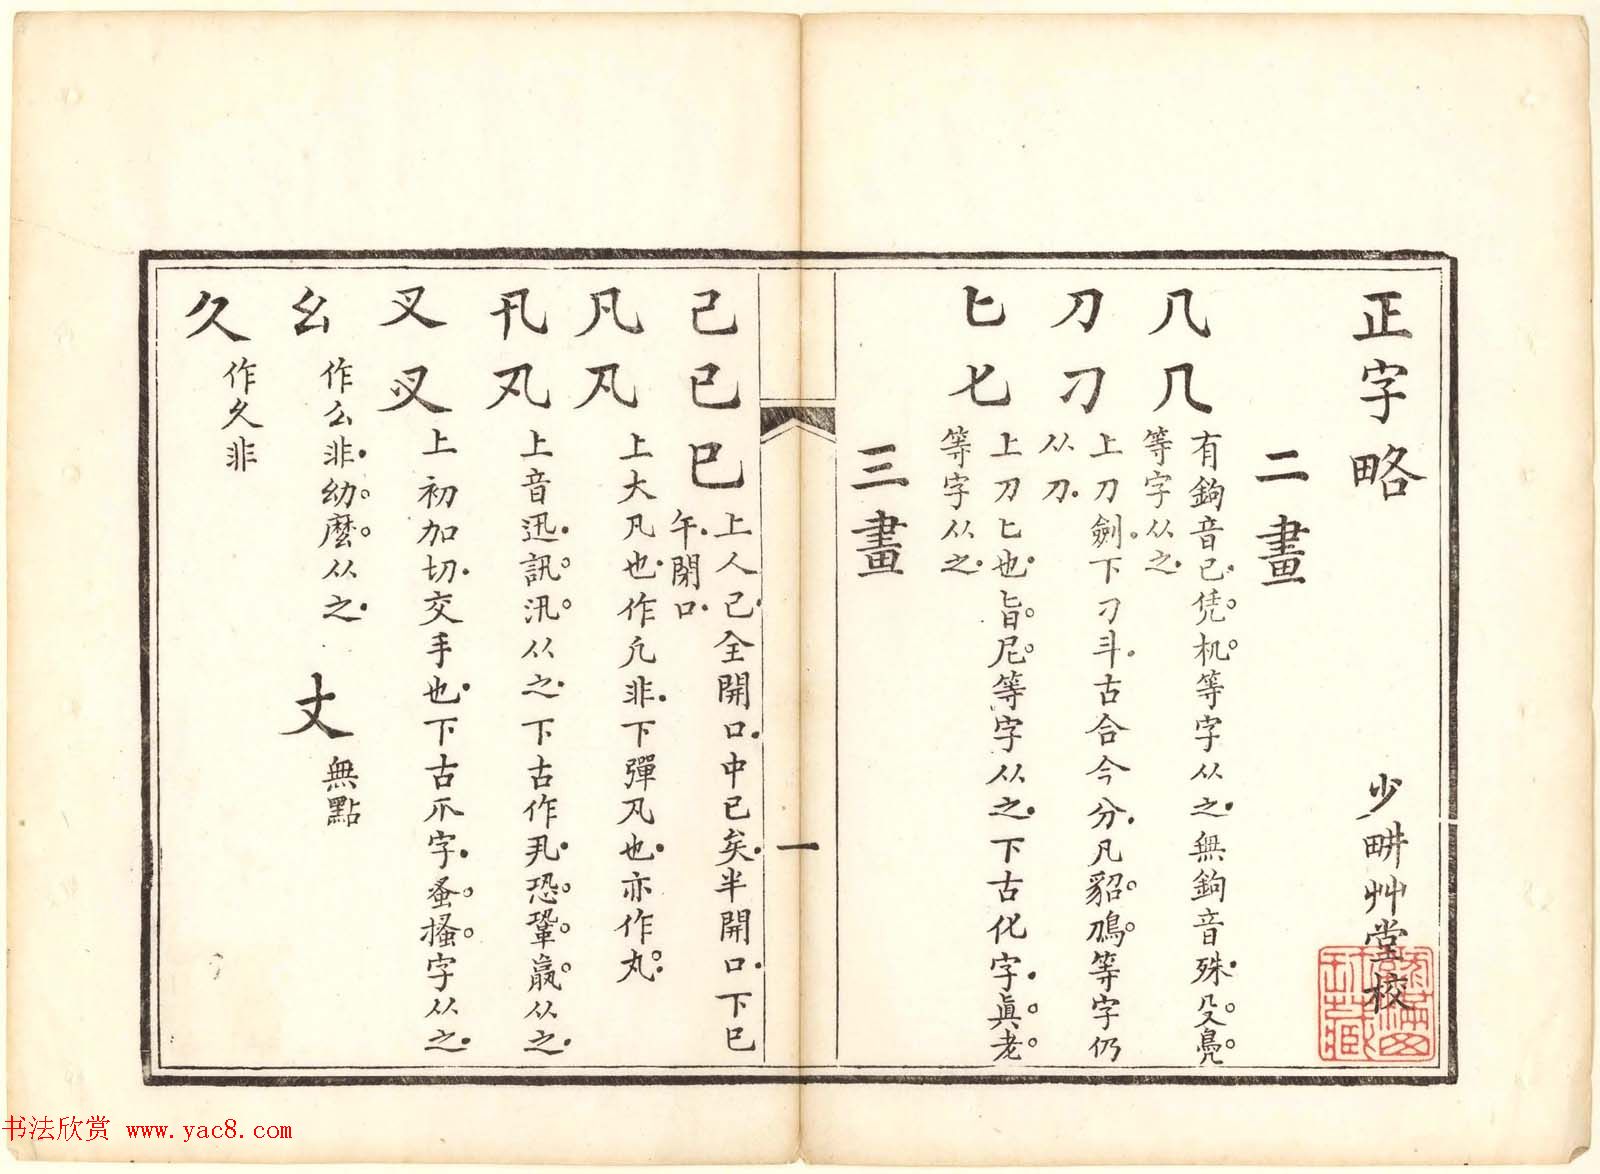 正字略 少畊艸堂校
二畫
几几 有鉤音已凭机等字从之無鉤音殊殳鳧
等字从之
刀刁 上刀劍下刁斗古合今分凡貂鳭等字仍
从刀
匕𠤎 上刀匕也旨尼等字从之下古化字眞老
等字从之
三畫
一
己已巳 上人己全開口中已矣半開口下巳
午閉口
凡凡 上大凡也作凣非下彈丸也亦作丸
卂丮 上音迅訊汛从之下古作丮恐鞏嬴从之
叉㕚 上初加切交手也下古爪字蚤搔字从之
幺 作么非幼麼从之 丈 無點
久 作久非
书法欣赏 www.yac8.com